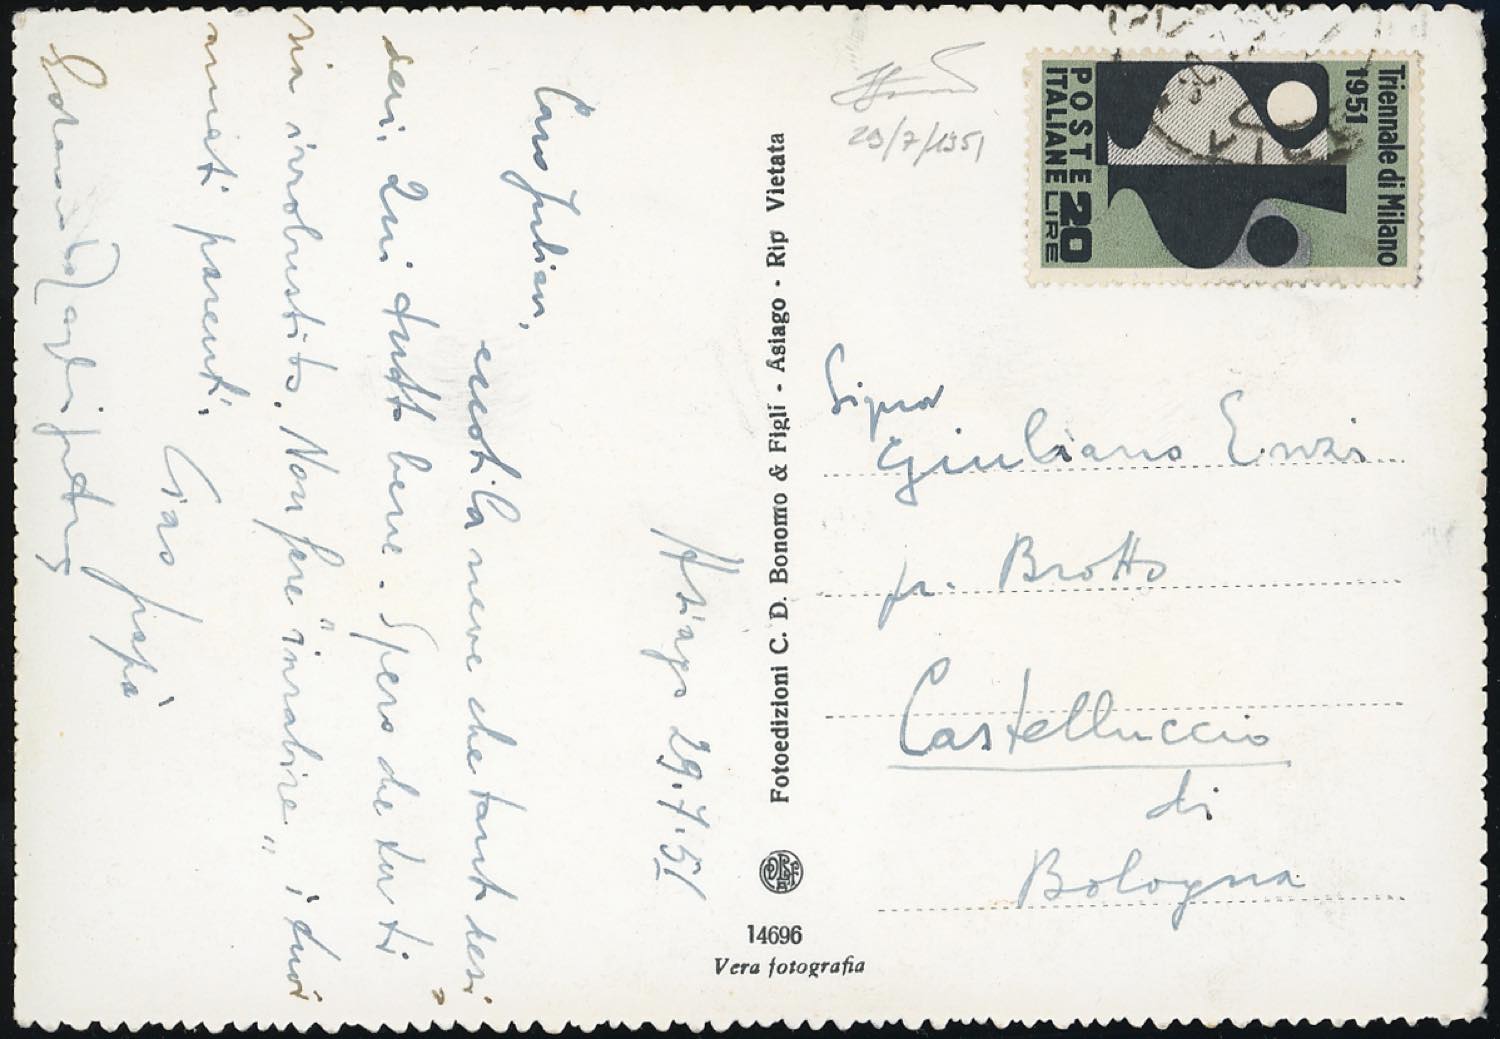 Asiago 29.7.51
Caro Julian,
eccoti la neve che tanto desi
deri. Qui tutto bene. Spero che tu ti
sia irrobustito. Non fare "inrabire" i tuoi
amati parenti.
Ciao papà
29/7/1951
Triennale di Milano
1951
POSTE
ITALIANE
20
LIRE
Fotoedizioni C. D. Bonomo & Figli - Asiago - Rip Vietata
14696
Vera fotografia
Signor
Giuliano Enzi
pr. Brotto
Castelluccio
di
Bologna